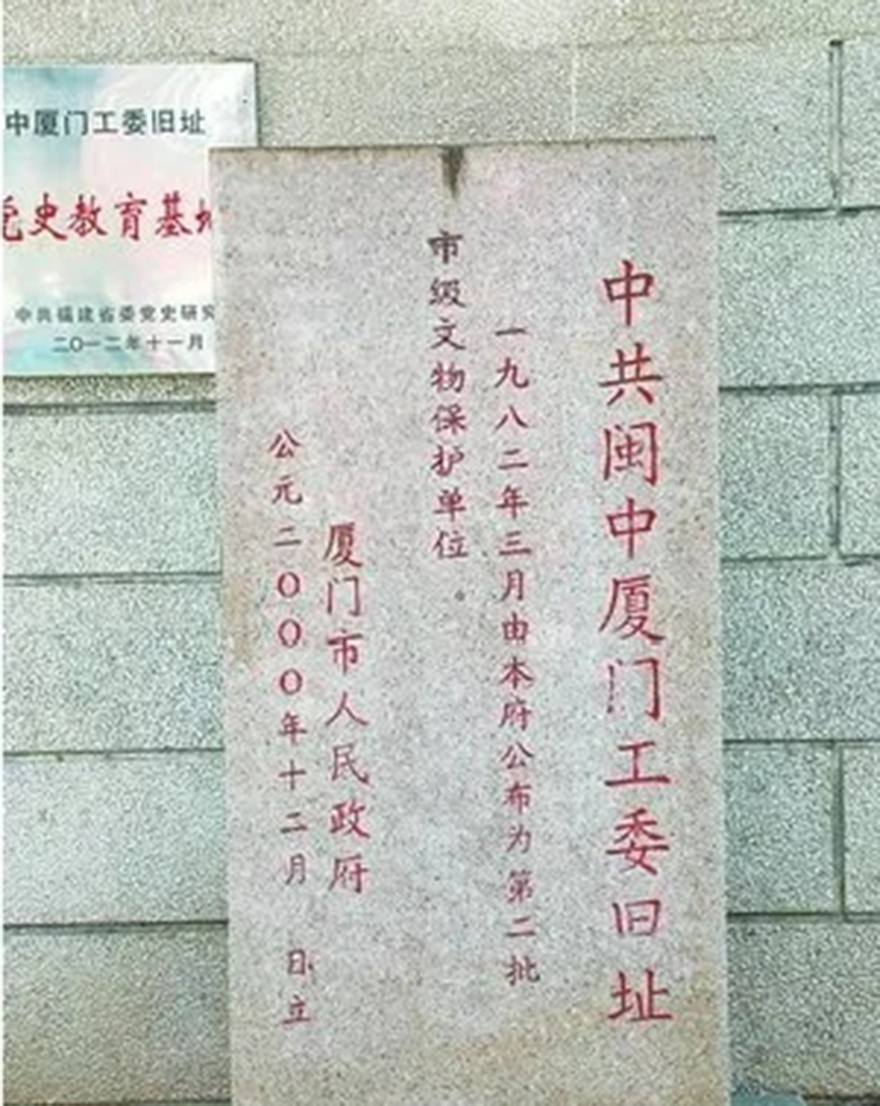 中共闽中厦门工委旧址
一九八二年三月由本府公布为第二批
市级文物保护单位。
厦门市人民政府
公元二〇〇〇年十二月 日立
中厦门工委旧址
党史教育基地
中共福建省委党史研究
二〇一二年十一月